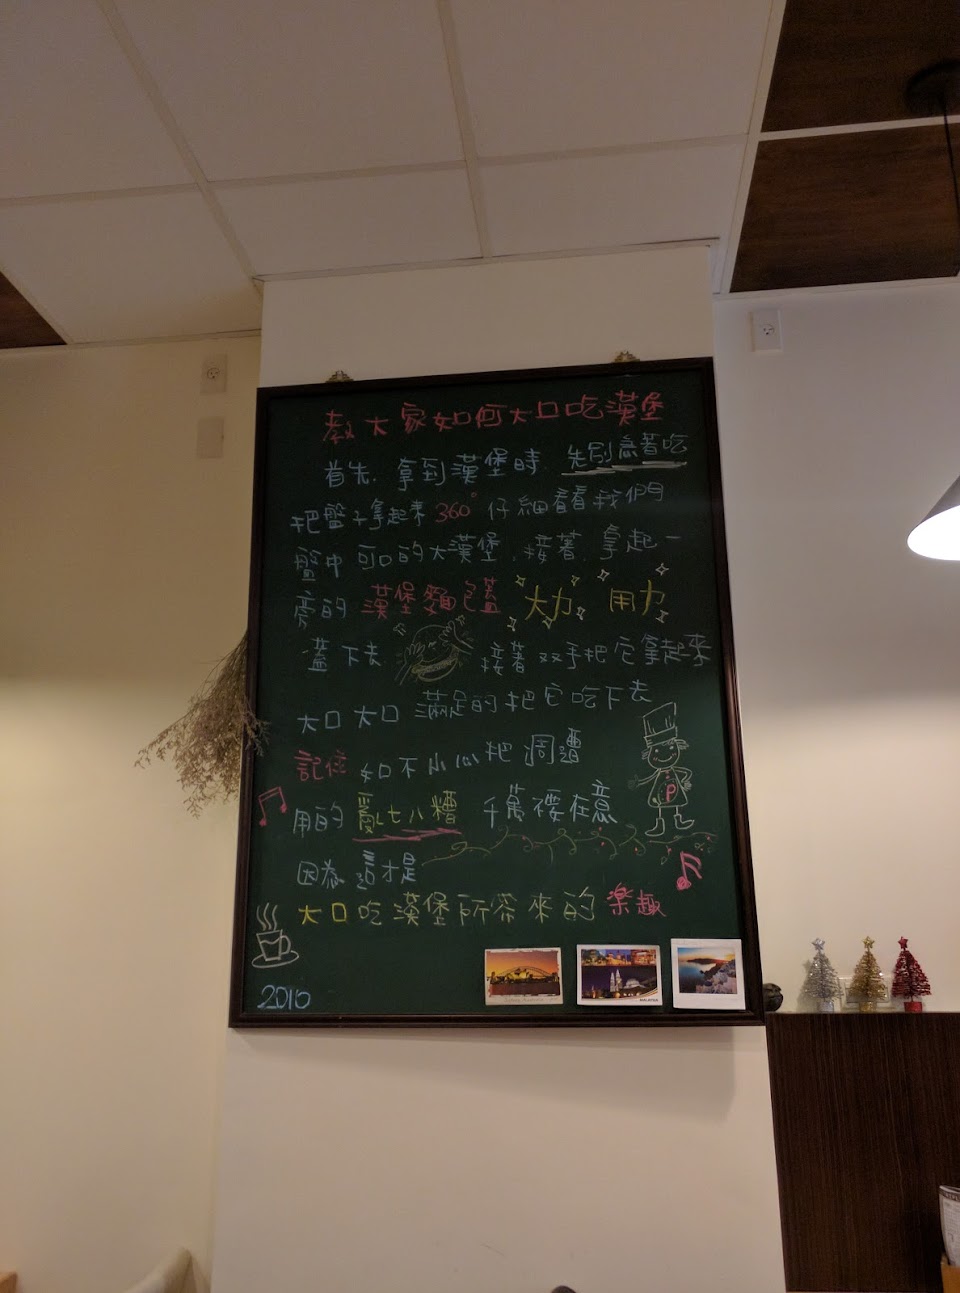 教大家如何大口吃漢堡
首先.拿到漢堡時.先別急著吃
把盤子拿起來360°仔細看看我們
盤中可口的大漢堡.接著.拿起一
旁的漢堡麵包蓋 大力 用力
蓋下去 接著双手把它拿起來
大口大口滿足的把它吃下去
記住 如不小心把週遭
用的亂七八糟 千萬不要在意
因為這才是
大口吃漢堡所帶來的樂趣
P
2016
MALAYSIA